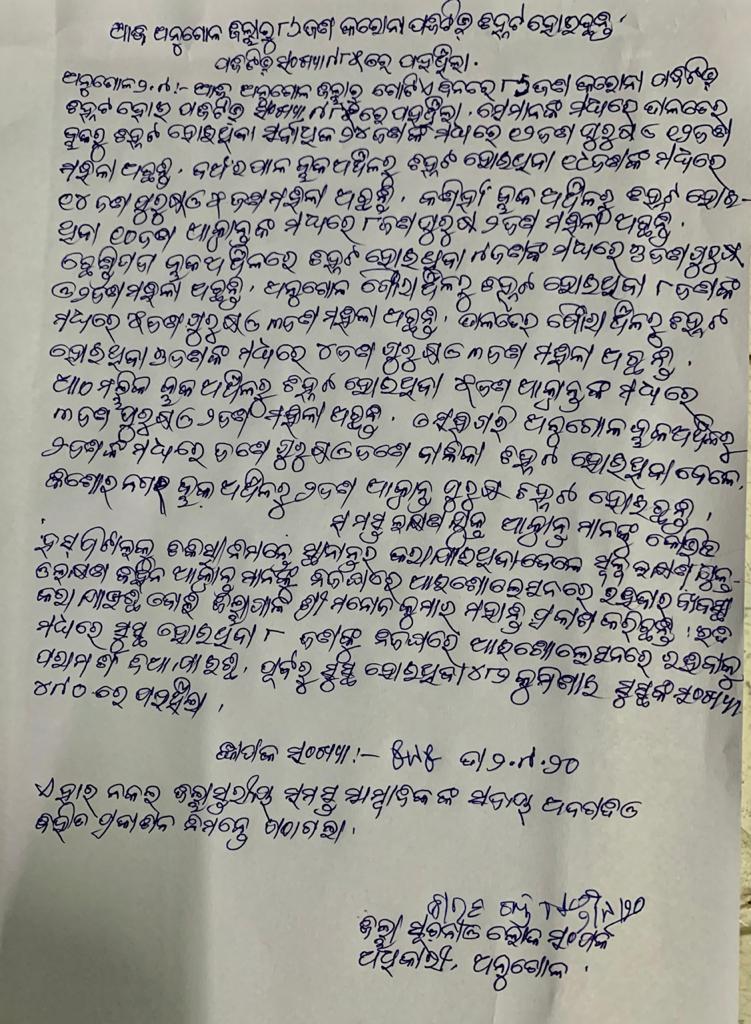 ଆଜି ଅନୁଗୋଳ ଜିଲ୍ଲାରୁ ୮୬ଜଣ କରୋନା ପଜିଟିଭ୍ ଚିହ୍ନଟ ହୋଇଛନ୍ତି
ପଜିଟିଭ୍ ସଂଖ୍ୟା ରେ ପହଞ୍ଚିଲା.
ଅନୁଗୋଳ ୨.୯:- ଆଜି ଅନୁଗୋଳ ଜିଲ୍ଲାରୁ ଗୋଟିଏ ଦିନରେ ୮୬ଜଣ କରୋନା ପଜିଟିଭ୍
ଚିହ୍ନଟ ହୋଇ ପଜିଟିଭ୍ ସଂଖ୍ୟା ରେ ପହଞ୍ଚିଲା. ସେମାନଙ୍କ ମଧ୍ୟରେ ତାଳଚେର
ବ୍ଲକରୁ ଚିହ୍ନଟ ହୋଇଥିବା ସର୍ବାଧିକ ୨୪ଜଣଙ୍କ ମଧ୍ୟରେ ୧୨ଜଣ ପୁରୁଷ ଓ ୧୨ଜଣ
ମହିଳା ଅଛନ୍ତି. ବଅଁରପାଳ ବ୍ଲକ ଅଞ୍ଚଳରୁ ଚିହ୍ନଟ ହୋଇଥିବା ଜଣଙ୍କ ମଧ୍ୟରେ
୧୪ ଜଣ ପୁରୁଷ ଓ ଜଣ ମହିଳା ଅଛନ୍ତି. କଣିହାଁ ବ୍ଲକ ଅଞ୍ଚଳରୁ ଚିହ୍ନଟ ହୋଇ-
ଥିବା ୧୦ଜଣ ଆକ୍ରାନ୍ତଙ୍କ ମଧ୍ୟରେ ୮ଜଣ ପୁରୁଷ ୨ଜଣ ମହିଳା ଅଛନ୍ତି.
ଛେଣ୍ଡିପଦା ବ୍ଲକ ଅଞ୍ଚଳରେ ଚିହ୍ନଟ ହୋଇଥିବା ଜଣଙ୍କ ମଧ୍ୟରେ ଜଣ ପୁରୁଷ
ଓ ୨ଜଣ ମହିଳା ଅଛନ୍ତି. ଅନୁଗୋଳ ପୌରାଞ୍ଚଳରୁ ଚିହ୍ନଟ ହୋଇଥିବା ୮ ଜଣଙ୍କ
ମଧ୍ୟରେ ୫ଜଣ ପୁରୁଷ ଓ ୩ଜଣ ମହିଳା ଅଛନ୍ତି. ତାଳଚେର ପୌରାଞ୍ଚଳରୁ ଚିହ୍ନଟ
ହୋଇଥିବା ୭ଜଣଙ୍କ ମଧ୍ୟରେ ୪ଜଣ ପୁରୁଷ ଓ ୩ଜଣ ମହିଳା ଅଛନ୍ତି.
ଆଠମଲ୍ଲିକ ବ୍ଲକ ଅଞ୍ଚଳରୁ ଚିହ୍ନଟ ହୋଇଥିବା ୫ଜଣ ଆକ୍ରାନ୍ତଙ୍କ ମଧ୍ୟରେ
୩ଜଣ ପୁରୁଷ ଓ ୨ଜଣ ମହିଳା ଅଛନ୍ତି. ସେହିପରି ଅନୁଗୋଳ ବ୍ଲକ ଅଞ୍ଚଳରୁ
୨ଜଣଙ୍କ ମଧ୍ୟରେ ଜଣେ ପୁରୁଷ ଓ ଜଣେ ବାଳିକା ଚିହ୍ନଟ ହୋଇଥିବା ବେଳେ,
କିଶୋରନଗର ବ୍ଲକ ଅଞ୍ଚଳରୁ ୨ଜଣ ଆକ୍ରାନ୍ତ ପୁରୁଷ ଚିହ୍ନଟ ହୋଇଛନ୍ତି.
ସମସ୍ତ ଲକ୍ଷଣ ଯୁକ୍ତ ଆକ୍ରାନ୍ତ ମାନଙ୍କୁ କୋଭିଡ
ହସ୍ପିଟାଲକୁ ଚିକିତ୍ସା ନିମନ୍ତେ ସ୍ଥାନାନ୍ତର କରାଯାଇଥିବା ବେଳେ ସ୍ୱଳ୍ପ ଲକ୍ଷଣ ଯୁକ୍ତ-
ଓ ଲକ୍ଷଣ ବିହୀନ ଆକ୍ରାନ୍ତ ମାନଙ୍କୁ ନିଜଘରେ ଆଇଶୋଲେସନରେ ରଖିବାର ବ୍ୟବସ୍ଥା
କରାଯାଇଛି ବୋଲି ଜିଲ୍ଲାପାଳ ଶ୍ରୀ ମନୋଜ କୁମାର ମହାନ୍ତି ପ୍ରକାଶ କରିଛନ୍ତି. ଇତି
ମଧ୍ୟରେ ସୁସ୍ଥ ହୋଇଥିବା ୮ ଜଣଙ୍କୁ ନିଜଘରେ ଆଇଶୋଲେସନରେ ରହିବାକୁ
ପରାମର୍ଶ ଦିଆଯାଇଛି. ପୂର୍ବରୁ ସୁସ୍ଥ ହୋଇଥିବା ୪୮୨କୁ ମିଶାଇ ସୁସ୍ଥଙ୍କ ସଂଖ୍ୟା
୪୯୦ରେ ପହଞ୍ଚିଲା.
ଜ୍ଞାପକ ସଂଖ୍ୟା:- ତା ୨.୯.୨୦
ଏହାର ନକଲ ଜିଲ୍ଲାସ୍ତରୀୟ ସମସ୍ତ ସାମ୍ବାଦିକଙ୍କ ସଦୟ ଅବଗତି ଓ
ବହୁଳ ପ୍ରକାଶନ ନିମନ୍ତେ ପଠାଗଲା.
ଜିଲ୍ଲା ସୂଚନା ଓ ଲୋକ ସଂପର୍କ
ଅଧିକାରୀ, ଅନୁଗୋଳ.